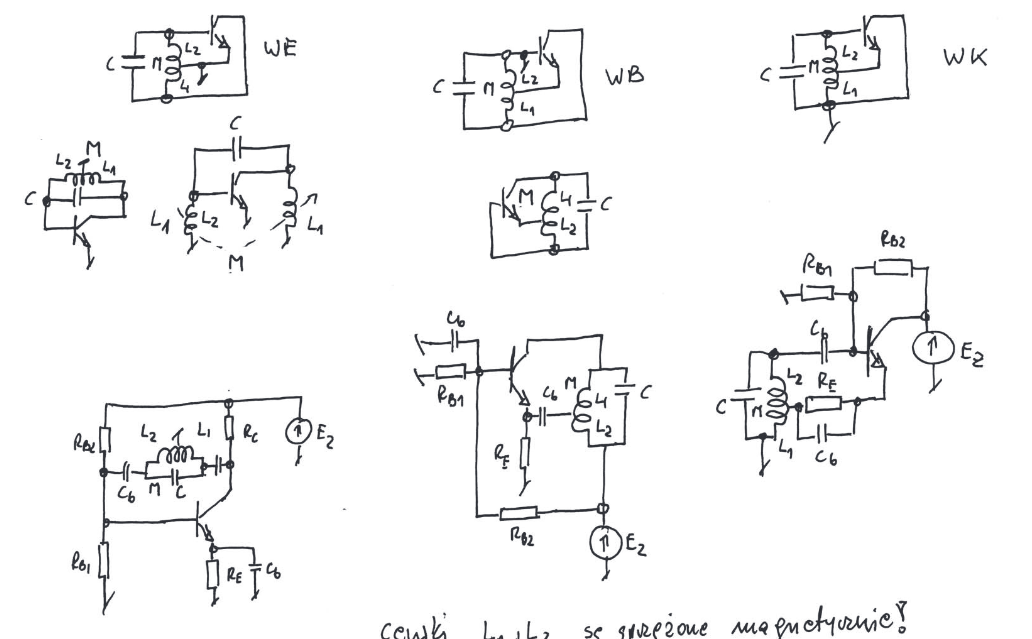 WE
C
M
L2
4
WB
C
M
L2
L1
WK
C
M
L2
L1
L2 M L1
C
C
L1 L2
L1
M
M 4 C
L2
Cb
RB1
M
C
4
Cb
L2
RE
RB2
EZ
RB2
RB1
Cb
EZ
L2
RE
C
M
L1
Cb
RB2
L2 L1
RC
EZ
Cb M C
RB1
RE
Cb
L1 L2 są sprzężone magnetycznie!